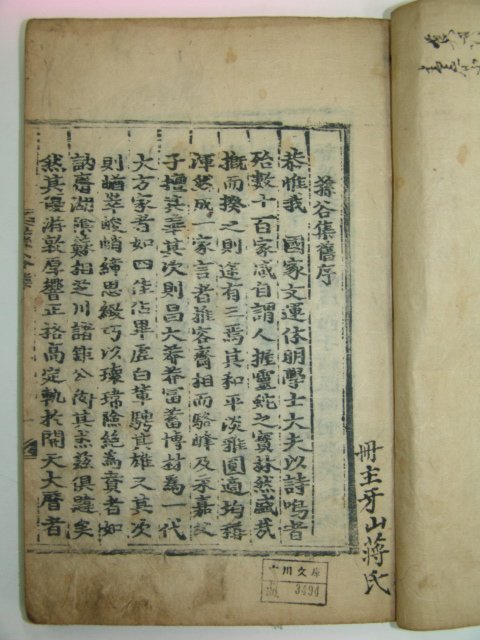 蓀谷集舊序
恭惟我 國家文運休明學士大夫以詩鳴者
殆數十百家咸自謂人握靈蛇之寶林然盛哉
槪而揆之則途有三焉其和平淡雅圓適均稱
渾然成一家言者推容齋相而駱峰及永嘉父
子擅其華其次則昌大莽莽富蓄博材爲一代
大方家者如四佳佔畢虛白輩騁其雄又其次
則崷崒峻峭締思緻巧以瓌瑋險絶爲貴者如
訥齋湖陰蘇相芝川諸鉅公尙其奇玆俱難矣
然其優游敦厚響正格高定軌於開天大曆者
冊主牙山蔣氏
川文庫
No. 3494